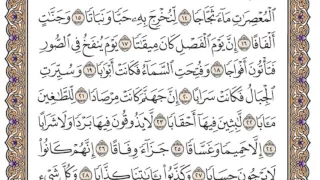 ٱلْمُعْصِرَٰتِ مَآءً ثَجَّاجًا ١٤ لِّنُخْرِجَ بِهِۦ حَبًّا وَنَبَاتًا ١٥ وَجَنَّٰتٍ
أَلْفَافًا ١٦ إِنَّ يَوْمَ ٱلْفَصْلِ كَانَ مِيقَٰتًا ١٧ يَوْمَ يُنفَخُ فِى ٱلصُّورِ
فَتَأْتُونَ أَفْوَاجًا ١٨ وَفُتِحَتِ ٱلسَّمَآءُ فَكَانَتْ أَبْوَٰبًا ١٩ وَسُيِّرَتِ
ٱلْجِبَالُ فَكَانَتْ سَرَابًا ٢٠ إِنَّ جَهَنَّمَ كَانَتْ مِرْصَادًا ٢١ لِّلطَّٰغِينَ
مَـَٔابًا ٢٢ لَّٰبِثِينَ فِيهَآ أَحْقَابًا ٢٣ لَّا يَذُوقُونَ فِيهَا بَرْدًا وَلَا شَرَابًا
٢٤ إِلَّا حَمِيمًا وَغَسَّاقًا ٢٥ جَزَآءً وِفَاقًا ٢٦ إِنَّهُمْ كَانُوا۟
لَا يَرْجُونَ حِسَابًا ٢٧ وَكَذَّبُوا۟ بِـَٔايَٰتِنَا كِذَّابًا ٢٨ وَكُلَّ شَىْءٍ